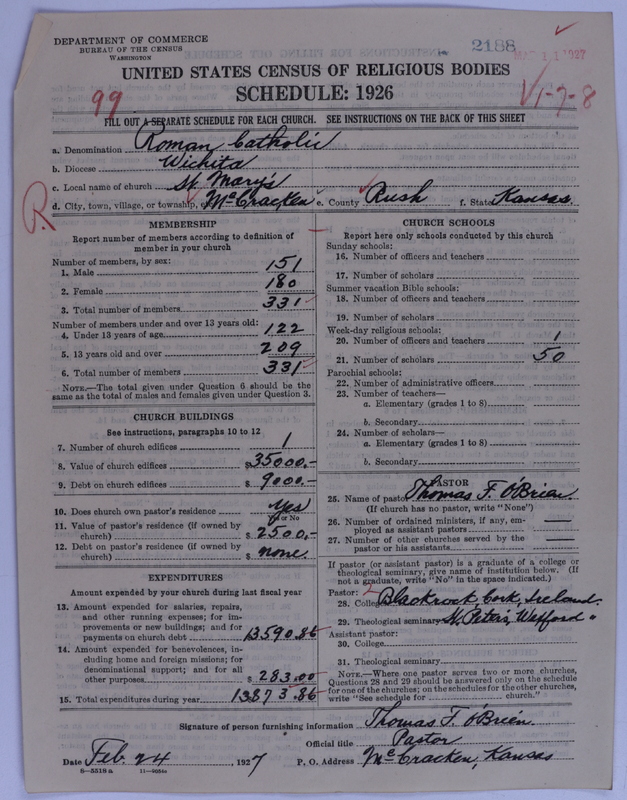 DEPARTMENT OF COMMERCE
BUREAU OF THE CENSUS
WASHINGTON
2188
MAR 11 1927
UNITED STATES CENSUS OF RELIGIOUS BODIES
SCHEDULE: 1926
99
1-7-8
FILL OUT A SEPARATE SCHEDULE FOR EACH CHURCH. SEE INSTRUCTIONS ON THE BACK OF THIS SHEET
a. Denomination Roman Catholic
b. Diocese Wichita
c. Local name of church St. Mary's
d. City, town, village, or township, McCracken e. County Rush f. State Kansas
R
MEMBERSHIP
Report number of members according to definition of
member in your church
Number of members, by sex:
1. Male 151
2. Female 180
3. Total number of members 331
Number of members under and over 13 years old:
4. Under 13 years of age 122
5. 13 years old and over 209
6. Total number of members 331
NOTE.—The total given under Question 6 should be the
same as the total of males and females given under Question 3.
CHURCH BUILDINGS
See instructions, paragraphs 10 to 12
7. Number of church edifices 1
8. Value of church edifices $35000.-
9. Debt on church edifices $9000.-
10. Does church own pastor's residence Yes
Yes or No
11. Value of pastor's residence (if owned by
church) $2500.-
12. Debt on pastor's residence (if owned by
church) $ none.
EXPENDITURES
Amount expended by your church during last fiscal year
13. Amount expended for salaries, repairs,
and other running expenses; for im-
provements or new buildings; and for
payments on church debt 13590.86
14. Amount expended for benevolences, in-
cluding home and foreign missions; for
denominational support; and for all
other purposes $283.00
15. Total expenditures during year 13873.86
CHURCH SCHOOLS
Report here only schools conducted by this church
Sunday schools:
16. Number of officers and teachers
17. Number of scholars
Summer vacation Bible schools:
18. Number of officers and teachers
19. Number of scholars
Week-day religious schools:
20. Number of officers and teachers 1
21. Number of scholars 50
Parochial schools:
22. Number of administrative officers
23. Number of teachers—
a. Elementary (grades 1 to 8)
b. Secondary
24. Number of scholars—
a. Elementary (grades 1 to 8)
b. Secondary
PASTOR
25. Name of pastor Thomas F. O'Brien
(If church has no pastor, write "None")
26. Number of ordained ministers, if any, em-
ployed as assistant pastors —
27. Number of other churches served by the
pastor or his assistants —
If pastor (or assistant pastor) is a graduate of a college or
theological seminary, give name of institution below. (If
not a graduate, write "No" in the space indicated.)
Pastor:
28. College Blackrock, Cork, Ireland.
29. Theological seminary St. Peters, Wexford "
Assistant pastor:
30. College
31. Theological seminary
NOTE.—Where one pastor serves two or more churches,
Questions 28 and 29 should be answered only on the schedule
for one of the churches; on the schedules for the other churches,
write "See schedule for church."
Signature of person furnishing information Thomas F. O'Brien.
Official title Pastor
Date Feb. 24, 1927 P. O. Address McCracken, Kansas
8-5518a 11-9054a